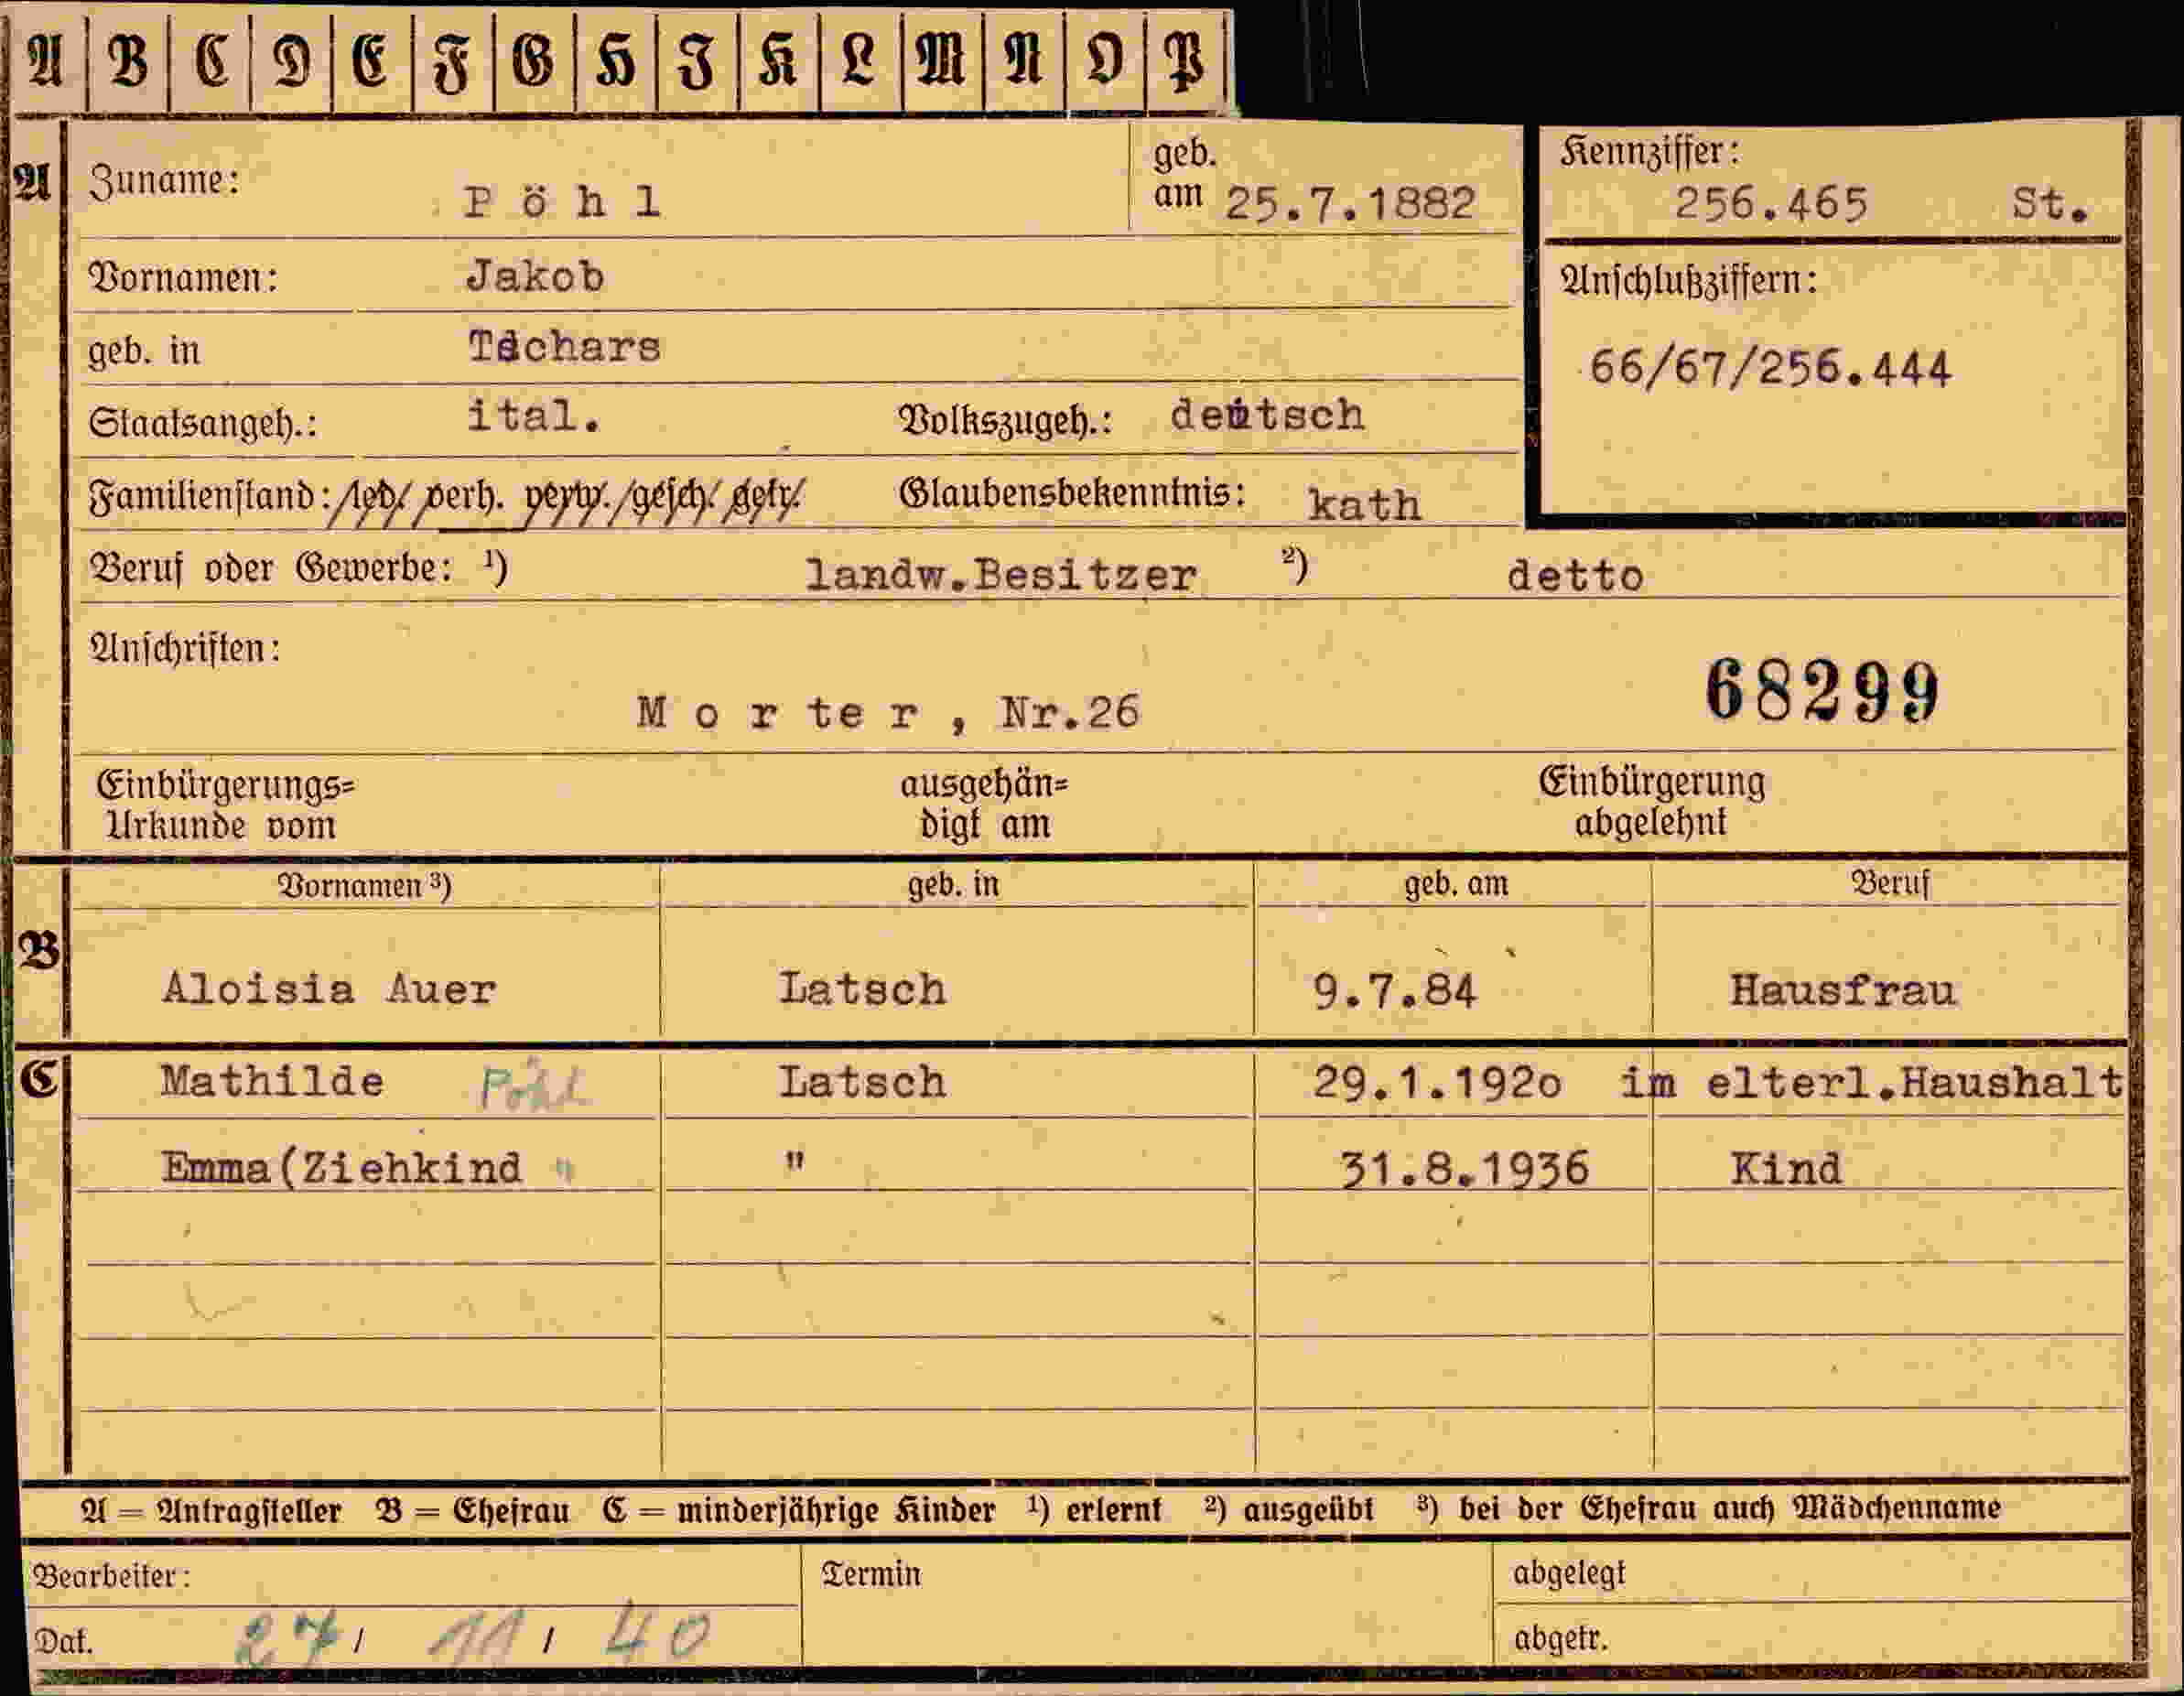 A B C D E F G H I K L M N O P
A Zuname: Pöhl geb. am 25.7.1882 Kennziffer: 256.465 St.
Vornamen: Jakob
Anschlußziffern:
geb. in Tschars
66/67/256.444
Staatsangeh.: ital. Volkszugeh.: deutsch
Familienstand: led. verh. verw. gesch. getr. Glaubensbekenntnis: kath
Beruf oder Gewerbe: ¹) landw.Besitzer ²) detto
Anschriften:
Morter, Nr.26 68299
Einbürgerungs= ausgehän= Einbürgerung
Urkunde vom digt am abgelehnt
Vornamen ³) geb. in geb. am Beruf
B
Aloisia Auer Latsch 9.7.84 Hausfrau
C Mathilde Pöhl Latsch 29.1.192o im elterl.Haushalt
Emma(Ziehkind " " 31.8.1936 Kind
A = Antragsteller B = Ehefrau C = minderjährige Kinder ¹) erlernt ²) ausgeübt ³) bei der Ehefrau auch Mädchenname
Bearbeiter: Termin abgelegt
Dat. 27/ 11/ 40 abgetr.